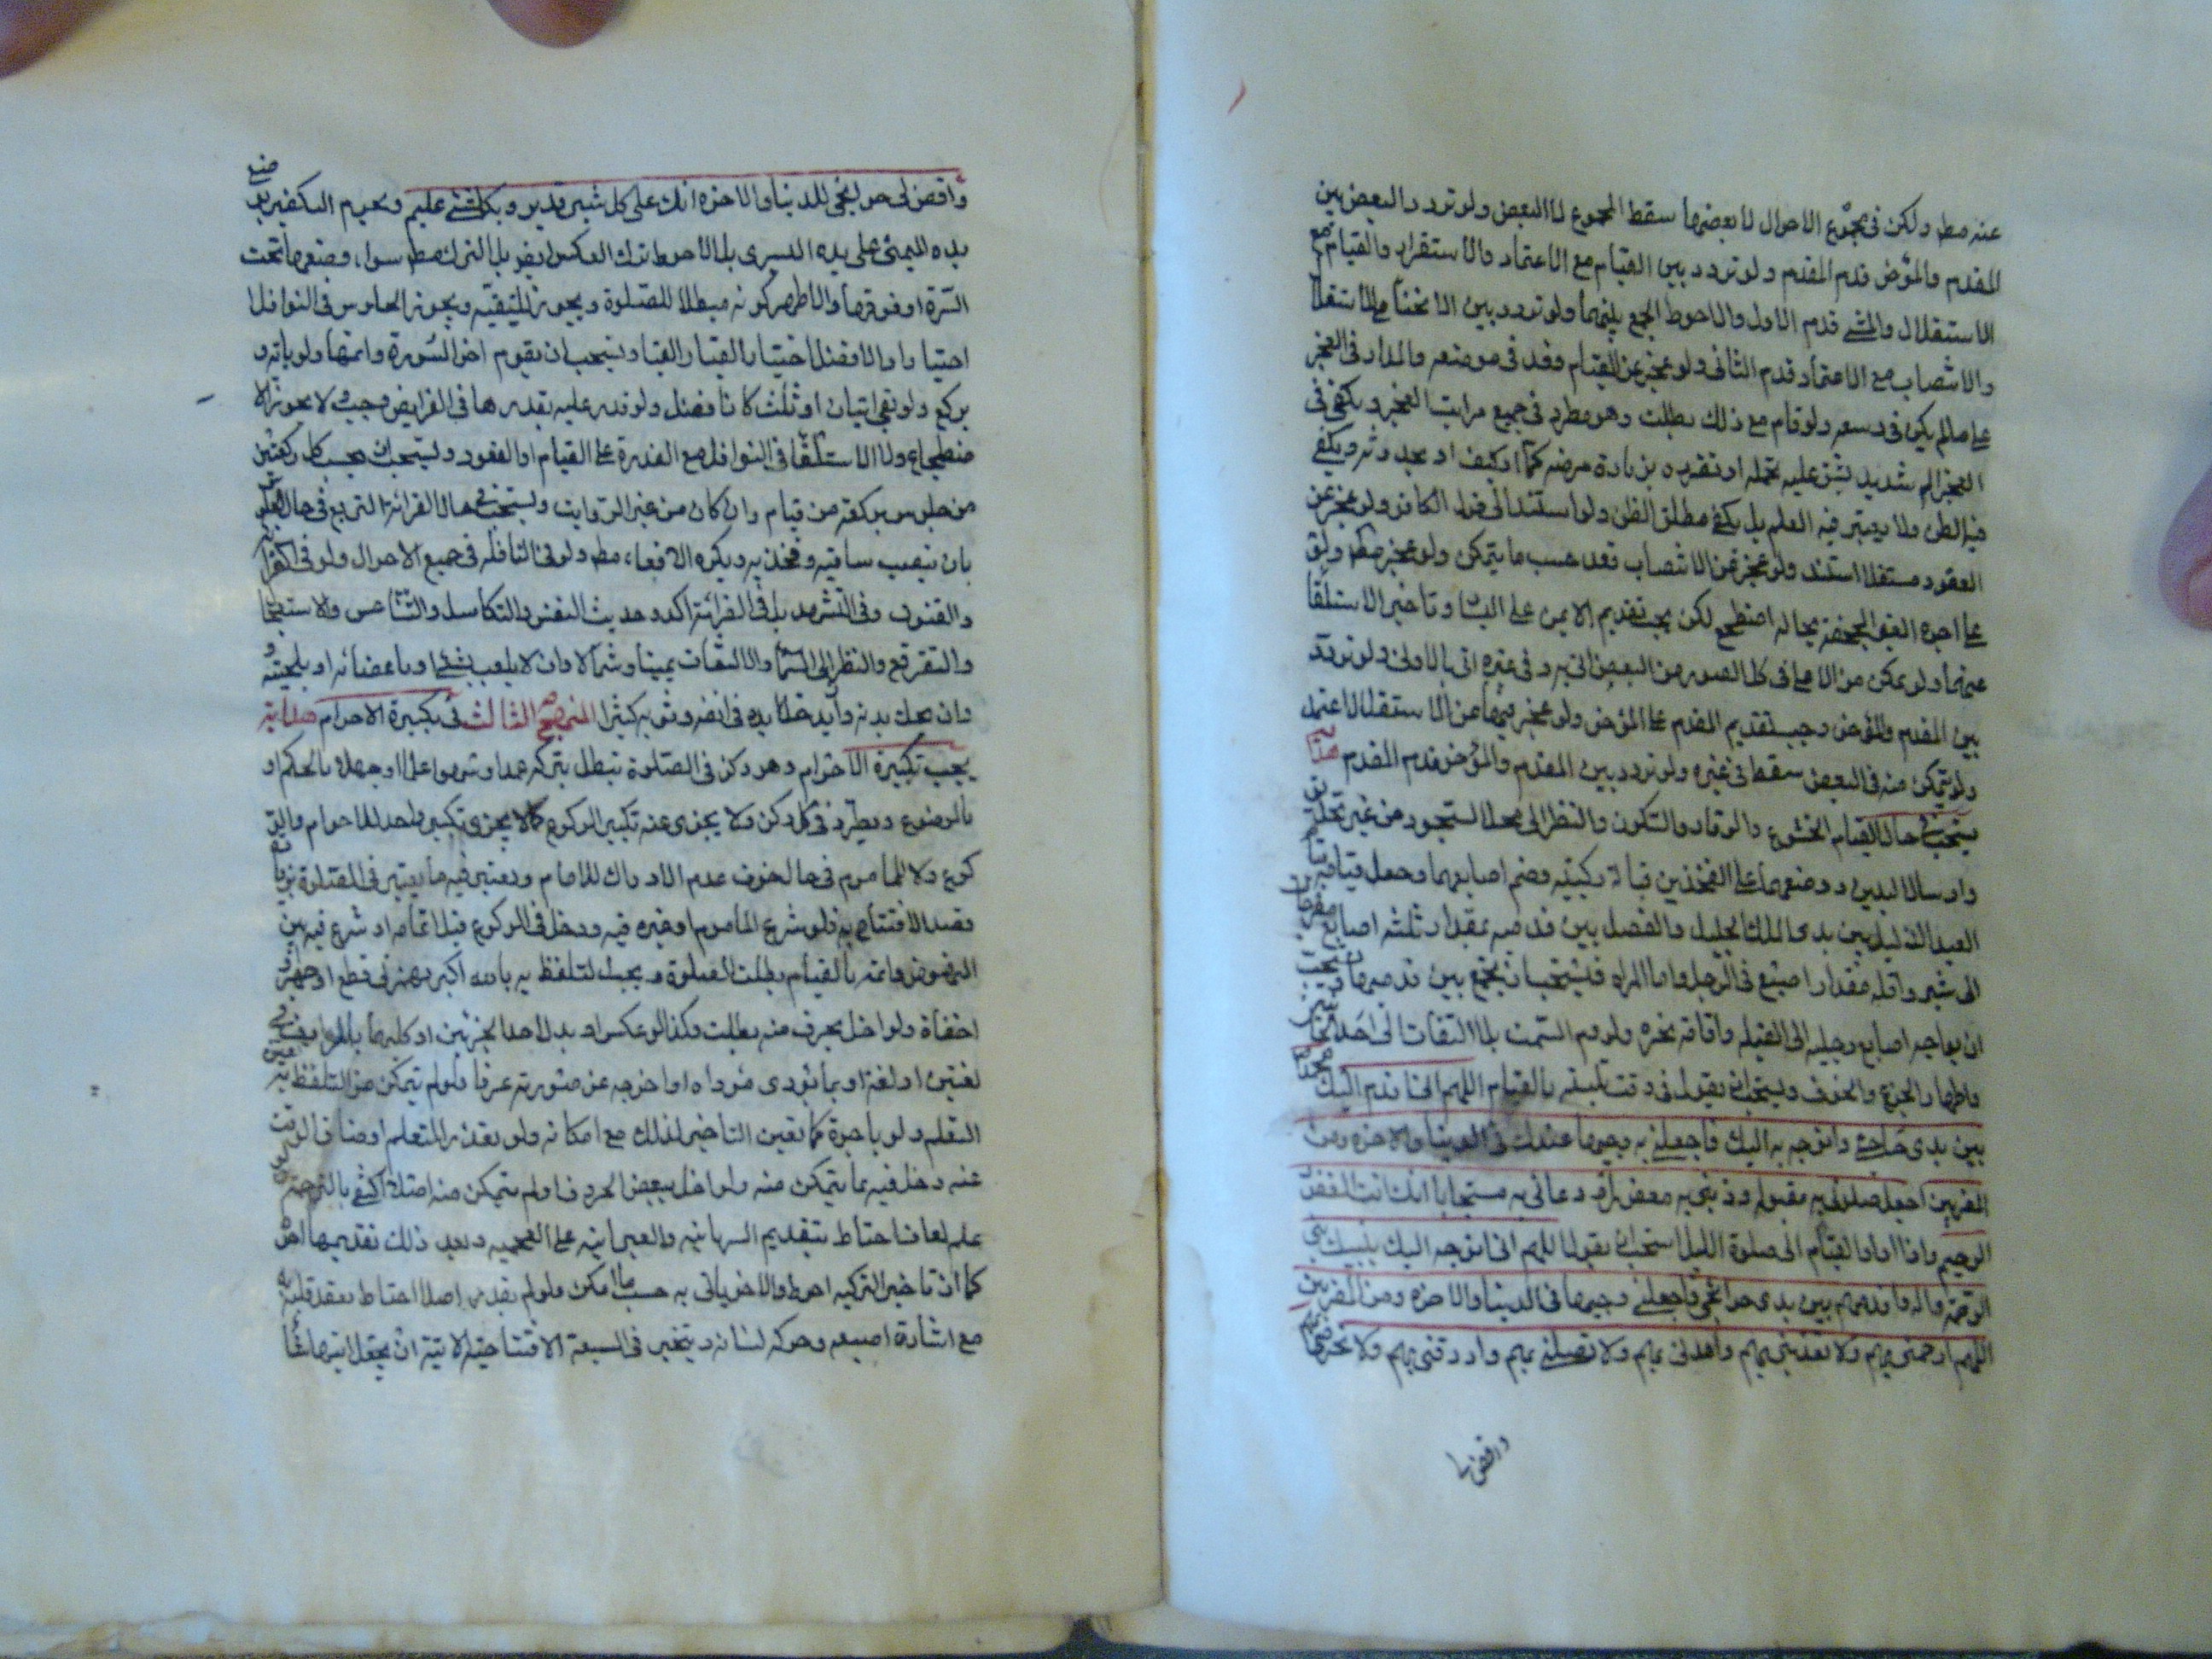 عنه مط ولكن في مجموع الاحوال لا بعضها سقط المجموع لا البعض ولو تردد البعض بين
المقدم والمؤخر قدم المقدم ولو تردد بين القيام مع الاعتماد والاستقرار والقيام مع
الاستقلال والمشي قدم الاول والاحوط الجمع بينهما ولو تردد بين الانحناء مع الاستقلال
والانتصاب مع الاعتماد قدم الثاني ولو عجز عن القيام قعد في موضعه والمدار في العجز
على ما لم يكن في وسعه ولو قام مع ذلك بطلت وهو مطرد في جميع مراتب العجز ويكفي في
العجز الم شديد يشق عليه تحمله او تقريره بزيادة مرضه كما او كيف او بحدوثه ويكفي
فيه الظن ولا يعتبر فيه العلم بل يكفي مطلق الظن ولو استند الى قول الكافر ولو عجز عن
القعود مستقلا استند ولو عجز عن الانتصاب قعد حسب ما يتمكن ولو عجز مط ولو
على اجره الغير المجحفة بحاله اضطجع لكن يجب تقديم الايمن على اليسار وتاخير الاستلقاء
عنهما ولو تمكن من الاعلى في كل الصور من البعض اتى به وفي غيره اتى بالاولى ولو تردد
بين المقدم والمؤخر وجب تقديم المقدم على المؤخر ولو عجز فيهما عن الاستقلال اعتمد
ولو تمكن منه في البعض سقط في غيره ولو تردد بين المقدم والمؤخر قدم المقدم هداية
يستحب في حال القيام الخشوع والوقار والسكون والنظر الى محل السجود من غير تحديق
وارسال اليدين ووضعهما على الفخذين قبالة ركبتيه وضم اصابعهما وجعل قيامه قيام
العبد الذليل بين يدي الملك الجليل والفصل بين قدميه بمقدار ثلثه اصابع مفرجات
الى شبر واقله مقدار اصبع في الرجل واما المراه فيستحب ان تجمع بين قدميها ويستحب
ان يواجه اصابع رجليه الى القبله واقامة نحره ولزوم السمت بلا التفات الى احد الجانبين
واظهار الجزع والخوف ويستحب ان يقول في وقت تلبسه بالقيام اللهم اني اقدم اليك محمدا
بين يدي حاجتي واتوجه به اليك فاجعلني به وجيها عندك في الدنيا والاخره ومن
المقربين اجعل صلوتي به مقبوله وذنبي به مغفورا ودعائي به مستجابا انك انت الغفور
الرحيم واذا اراد القيام الى صلوة الليل استحب ان يقول اللهم اني اتوجه اليك بنبيك نبي
الرحمة واله واقدمهم بين يدي حوائجي فاجعلني وجيها في الدنيا والاخره ومن المقربين
اللهم ارحمني بهم ولا تعذبني بهم واهدني بهم ولا تضلني بهم وارزقني بهم ولا تحرمني بهم
واقض لي
واقض لي حوائجي للدنيا والاخره انك على كل شيء قدير وبكل شيء عليم ويحرم التكفير بوضع
يده اليمنى على يده اليسرى بل الاحوط ترك العكس ايضا بل الترك مط سواء وضعهما تحت
السرة او فوقها والاظهر كونه مبطلا للصلوة ويجوز للتقيه ويجوز الجلوس في النوافل
اختيارا والافضل اختيار القيام ويستحب ان يقوم اخر السورة واتمها ولو باية و
يركع ولو بقي ايتان او ثلث كان افضل ولو قدر عليه بقدرها في الفرايض وجب ولا يجوز الا
ضطجاع ولا الاستلقاء في النوافل مع القدرة على القيام او القعود ويستحب ان يحسب كل ركعتين
من جلوس بركعة من قيام وان كان من غير الرواتب ويستحب في حال القرائة التربع
بان ينصب ساقيه وفخذيه ويكره الاقعاء مط ولو في النافله في جميع الاحوال ولو في
والقنوت وفي التشهد بل في القرائة اكد وحديث النفس والتكاسل والتناعس والاستعجال
والتفرقع والنظر الى السماء والالتفات يمينا وشمالا وان لا يلعب بشيء او باعضائه او بلحيته
وان يحك بدنه وايد خل يده في انفه وثوبه كثيرا المنهج الثالث في تكبيرة الاحرام هداية
يجب تكبيرة الاحرام وهو ركن في الصلوة تبطل بتركه عمدا وسهوا علما او جهلا بالحكم او
بالموضوع ويطرد في كل ركن ولا يجزي عنه تكبير الركوع كما لا يجزي تكبير واحد للاحرام والر
كوع ولا للماموم في حال خوف عدم الادراك للامام ويعتبر فيه ما يعتبر في الصلوة
وقصد الافتتاح به فلو شرع الماموم او غيره فيه ودخل في الركوع قبل اتمامه او شرع فيه بين
النهوض واتمه بالقيام بطلت الصلوة ويجب التلفظ به بالله اكبر بهمزتي قطع
اخفاتا ولو اخل بحرف منه بطلت وكذا لو عكس او بدل احد الجزئين او كليهما بالمرادف
لغتين او لغة او بما يؤدى مؤداه او اخرجه عن صورته عرفا ولو لم يتمكن من التلفظ به
التعلم ولو باجرة كما تعين التاخير لذلك مع امكانه ولو تعذر التعلم او ضاق الوقت
عنه دخل فيه بما يتمكن منه ولو اخل ببعض الحروف او لم يتمكن منه اصلا اكتفى بالترجمة
علم لغات احتاط بتقديم السريانيه والعبرانيه على العجميه وبعد ذلك تقديمها احوط
كما ان تاخير التركيه احوط والاخر ياتي به حسب ما امكن ولو لم يقدر اصلا احتاط بعقد قلبه
مع اشارة اصبعه وحركه لسانه ويتخير في السبعة الافتتاحية الاتية ان يجعل ايتها شاء